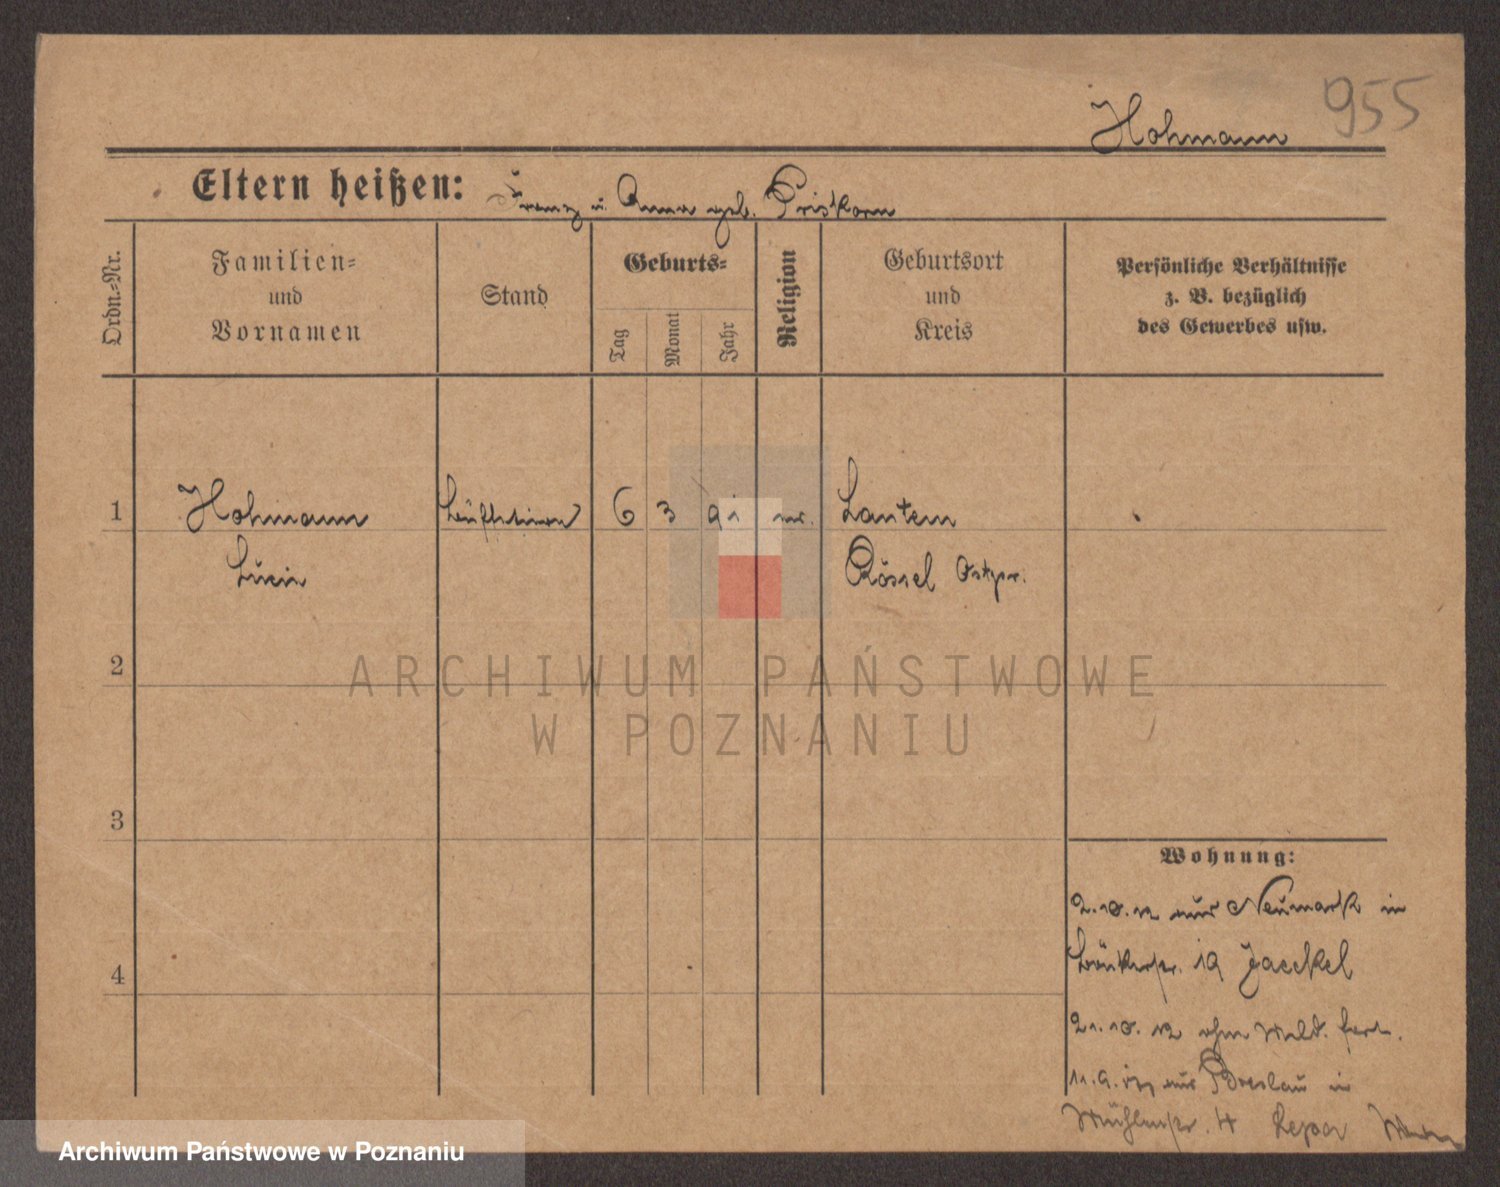 955
Hohmann
Eltern heißen: Franz u. Anna geb. Priskorn
Ordn.-Nr.
Familien-
und
Vornamen
Stand
Geburts-
Tag
Monat
Jahr
Religion
Geburtsort
und
Kreis
Persönliche Verhältnisse
z. B. bezüglich
des Gewerbes usw.
1
Hohmann
6
3
91
Lautern
Rössel Ostpr.
2
ARCHIWUM PAŃSTWOWE
W POZNANIU
3
Wohnung:
4
2.10.12 aus Neumark in
19 Jaeckel
21.10.12 ohne Meld. fort.
aus Breslau in
Mühlenstr. 4
Archiwum Państwowe w Poznaniu